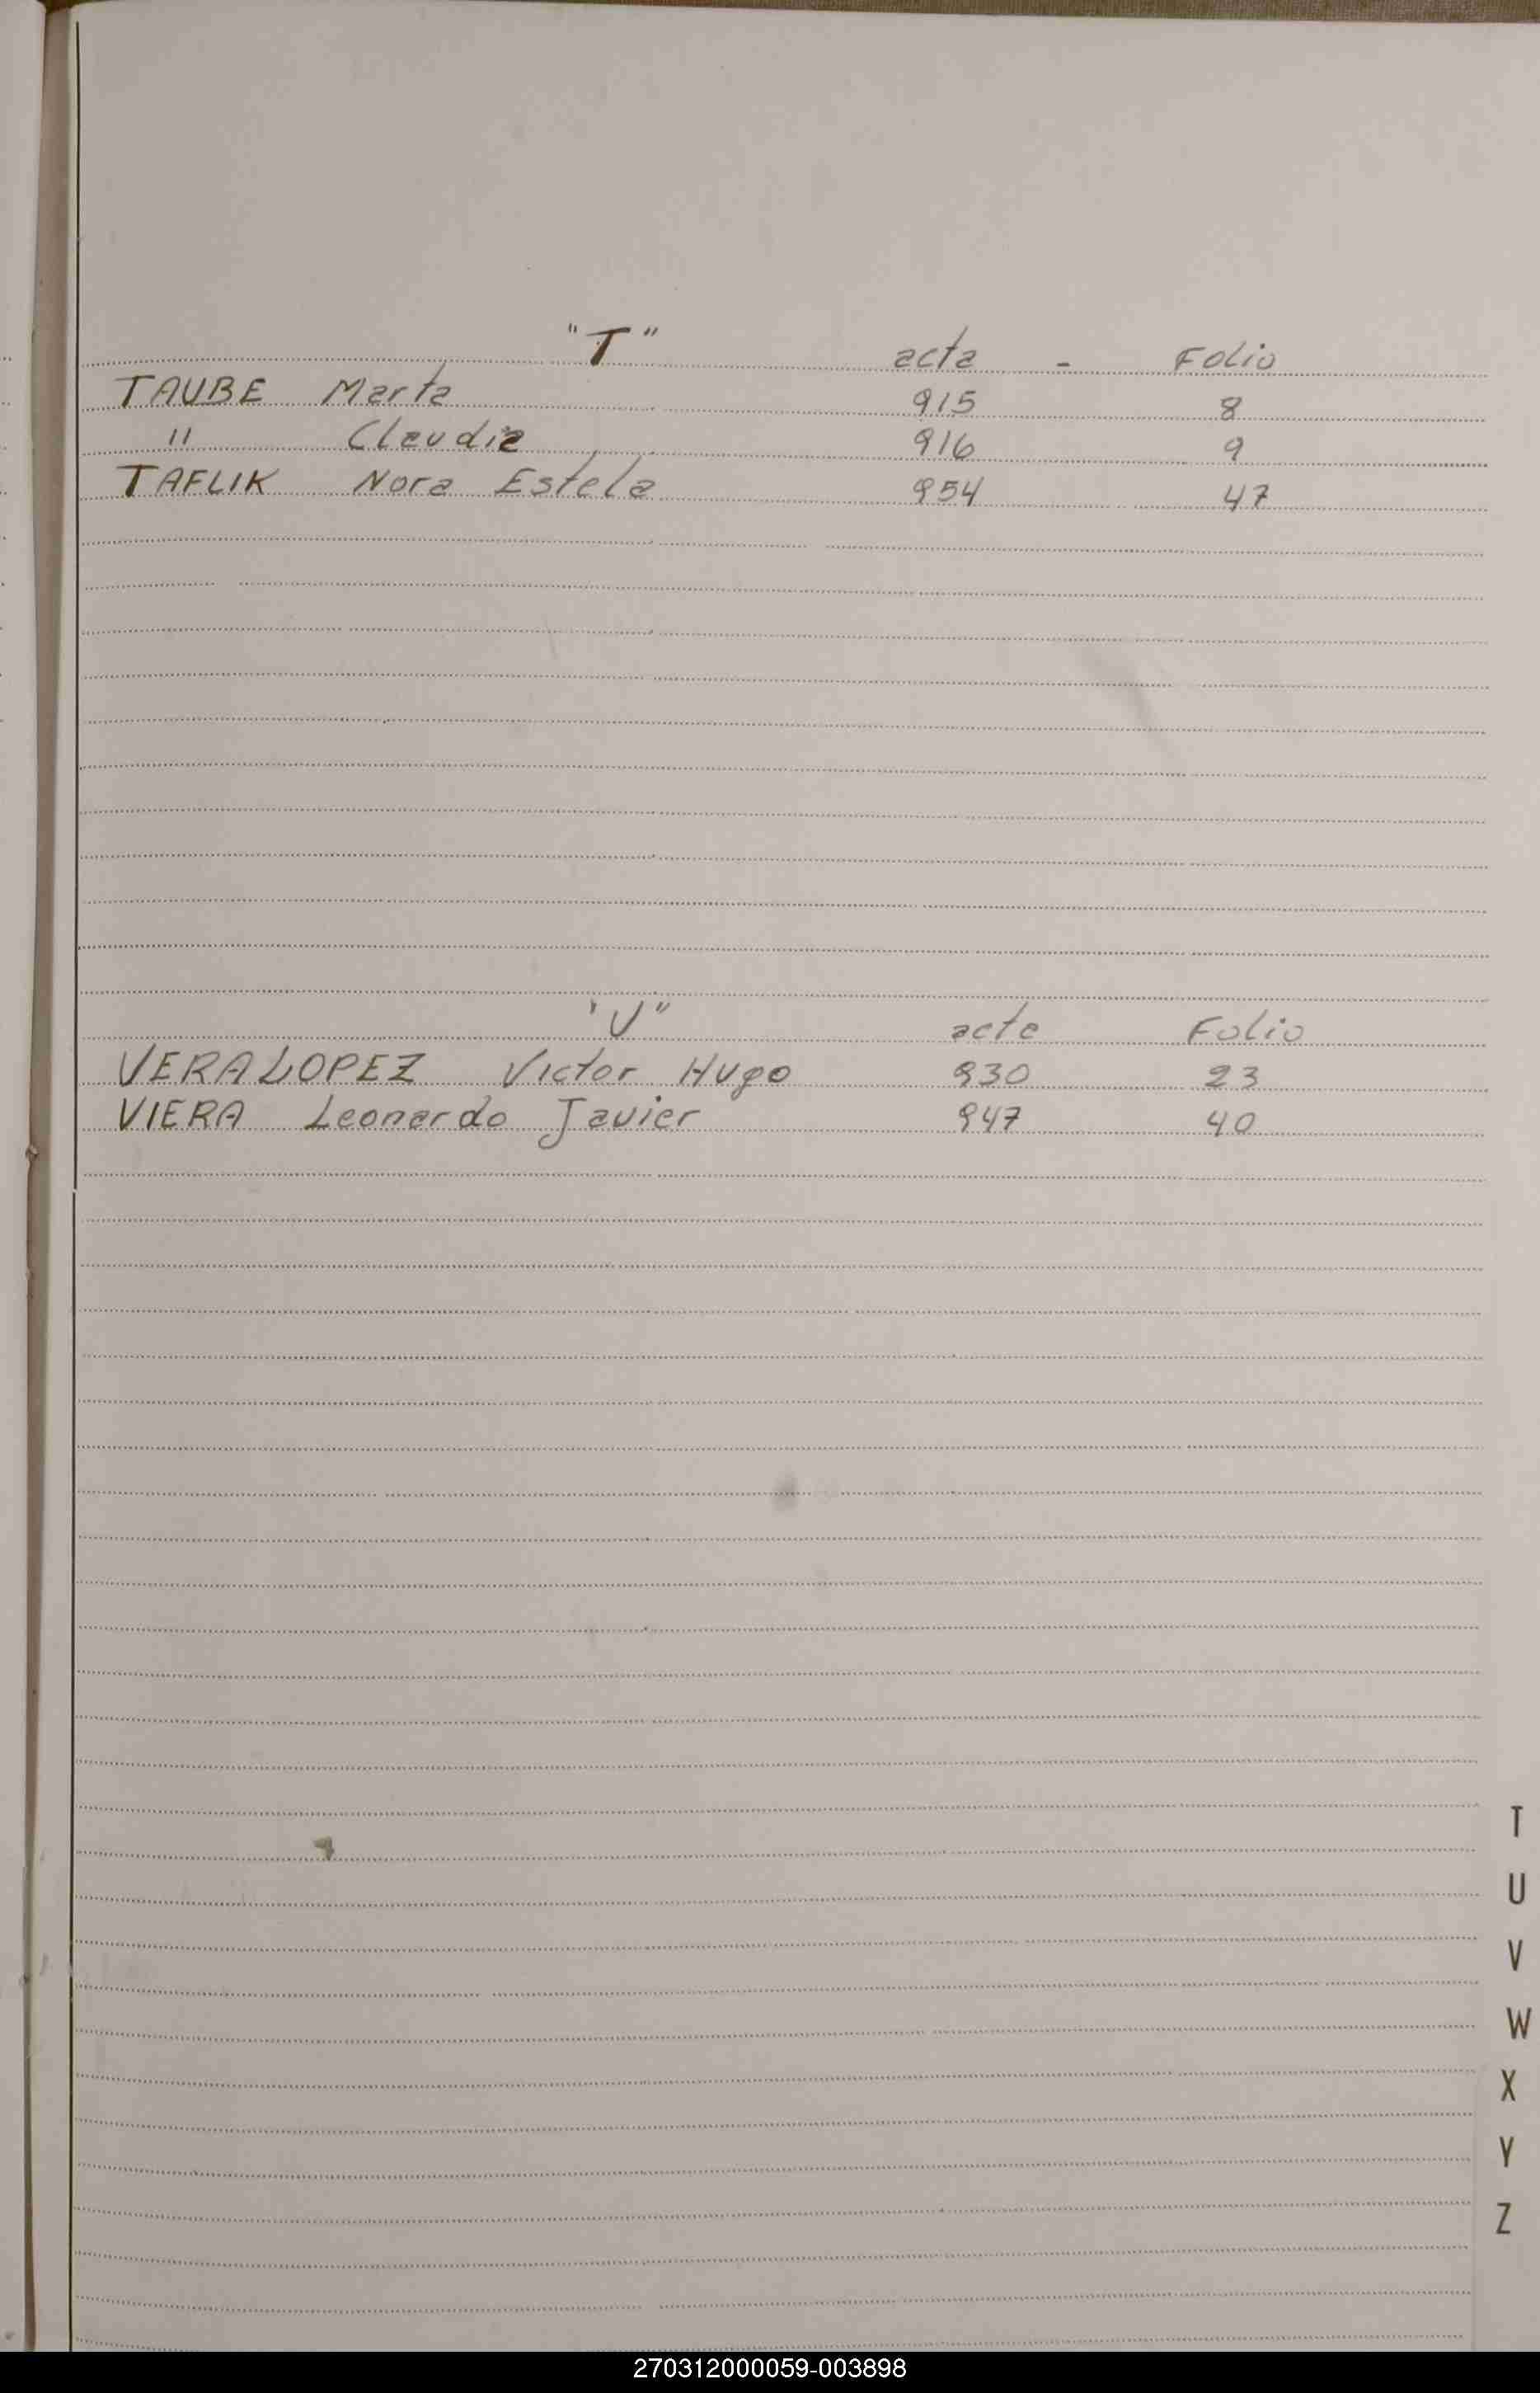 "T" acta - Folio
TAUBE Marta 915 8
" Claudia 916 9
TAFLIK Nora Estela 954 47
"V" acta Folio
VERA LOPEZ Victor Hugo 930 23
VIERA Leonardo Javier 947 40
T
U
V
W
X
Y
Z
270312000059-003898